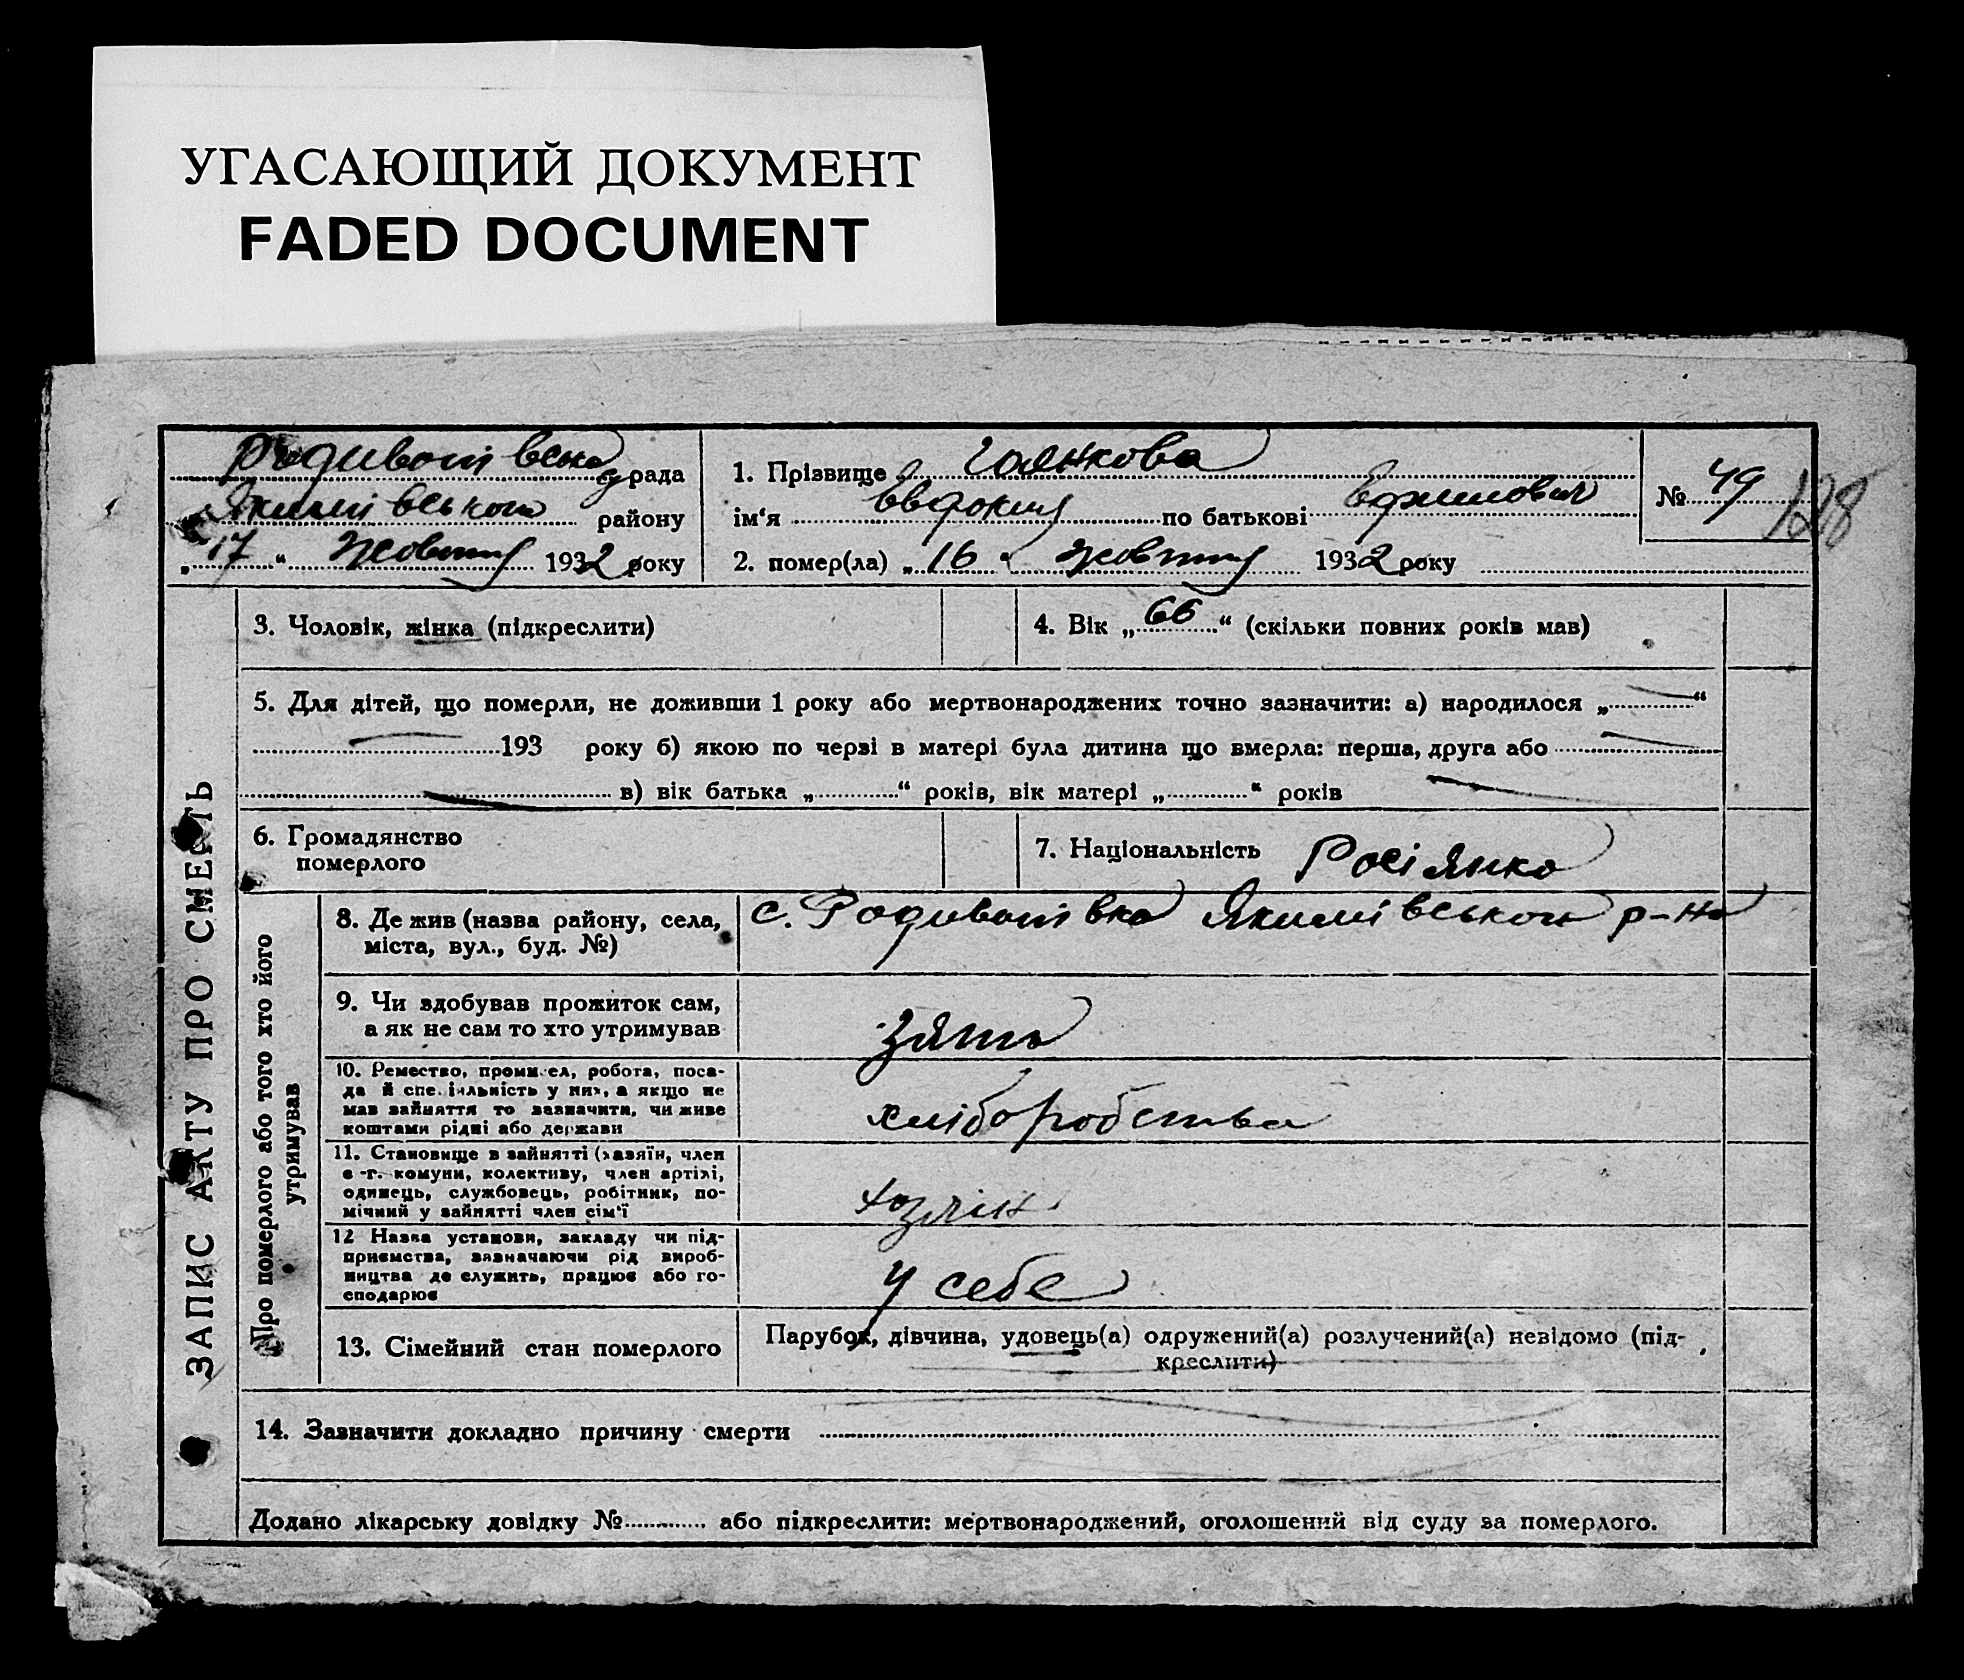 УГАСАЮЩИЙ ДОКУМЕНТ
FADED DOCUMENT
Родивонівська рада
Якимівського району
„17“ Жовтня 1932 року
1. Прізвище
ім‘я Евдокия по батькові
2. помер(ла) „16“ жовтня 1932 року
№ 49
128
ЗАПИС АКТУ ПРО СМЕРТЬ
3. Чоловік, жінка (підкреслити)
4. Вік „66“ (скільки повних років мав)
5. Для дітей, що померли, не доживши 1 року або мертвонароджених точно зазначити: а) народилося „ — “
— 193 року б) якою по черзі в матері була дитина що вмерла: перша, друга або —
— в) вік батька „ “ років, вік матері „ “ років —
6. Громадянство
померлого
7. Національність Росіянка
Про померлого або того хто його
утримував
8. Де жив (назва району, села,
міста, вул., буд. №)
с. Родивонівка Якимівського р-на
9. Чи здобував прожиток сам,
а як не сам то хто утримував
Зять
10. Ремество, промисел, робота, поса-
да й спеціальність у них, а якщо не
мав зайняття то зазначити, чи живе
коштами рідні або держави
хліборобства
11. Становище в зайнятті (хазяїн, член
с-г. комуни, колективу, член артілі,
одинець, службовець, робітник, по-
мічний у зайнятті член сім‘ї
хозяін
12 Назва установи, закладу чи під-
приємства, зазначаючи рід вироб-
ництва де служить, працює або го-
сподарює
У себе
13. Сімейний стан померлого
Парубок, дівчина, удовець(а) одружений(а) розлучений(а) невідомо (під-
креслити)
14. Зазначити докладно причину смерти
Додано лікарську довідку № або підкреслити: мертвонароджений, оголошений від суду за померлого.